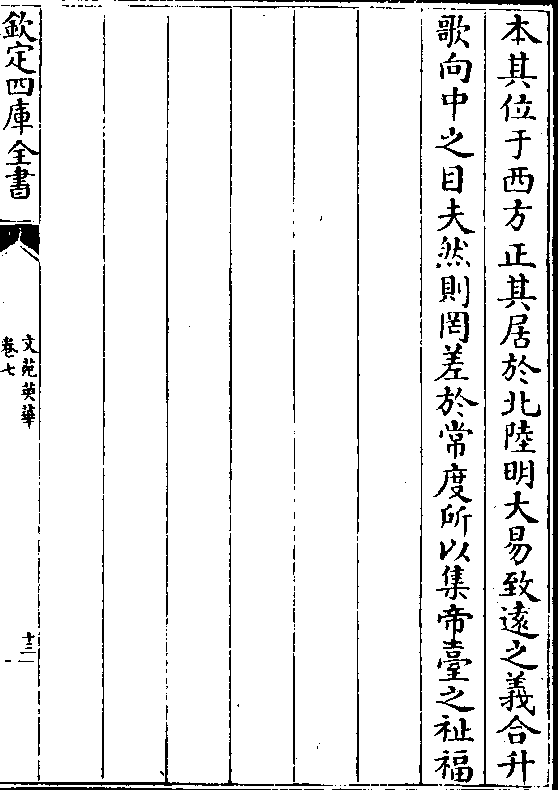 本其位于西方正其居於北陸明大易致遠之義合升
歌向中之日夫然則罔差於常度所以集帝臺之祉福
欽定四庫全書
文苑英華
卷七
十三